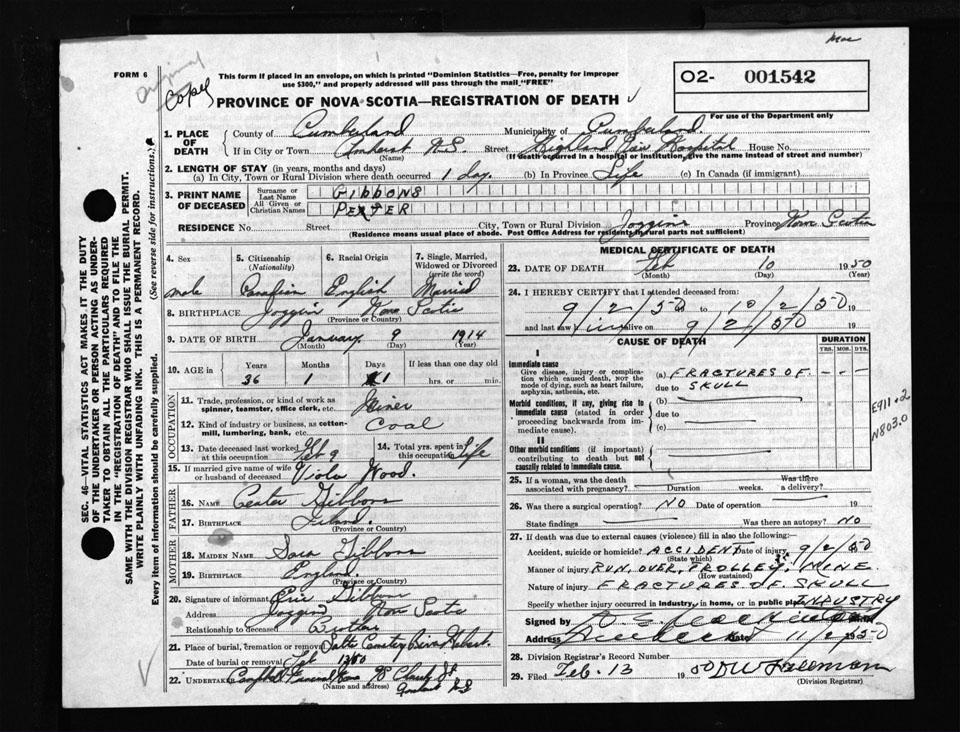 Mac
FORM 6
original
Copy
This form if placed in an envelope, on which is printed "Dominion Statistics—Free, penalty for improper
use $300," and properly addressed will pass through the mail "FREE"
O2- 001542
PROVINCE OF NOVA SCOTIA—REGISTRATION OF DEATH
For use of the Department only
1. PLACE OF DEATH
County of Cumberland Municipality of Cumberland
If in City or Town Amherst N.S. Street Highland View Hospital House No.
(Name) (If death occurred in a hospital or institution, give the name instead of street and number)
2. LENGTH OF STAY (in years, months and days)
(a) In City, Town or Rural Division where death occurred 1 day (b) In Province Life (c) In Canada (if immigrant)
3. PRINT NAME OF DECEASED
Surname or Last Name GIBBONS
All Given or Christian Names PETER
RESIDENCE No. Street City, Town or Rural Division Joggins Province Nova Scotia
(Residence means usual place of abode. Post Office Address for residents in rural parts not sufficient)
4. Sex 5. Citizenship (Nationality) 6. Racial Origin 7. Single, Married, Widowed or Divorced (write the word)
male Canadian English Married
8. BIRTHPLACE Joggins Nova Scotia
(Province or Country)
9. DATE OF BIRTH January 9 1914
(Month) (Day) (Year)
10. AGE in Years Months Days If less than one day old
36 1 1 hrs. or min.
OCCUPATION
11. Trade, profession, or kind of work as spinner, teamster, office clerk, etc. Miner
12. Kind of industry or business, as cotton-mill, lumbering, bank, etc. Coal
13. Date deceased last worked at this occupation Feb 9
14. Total yrs. spent in this occupation Life
15. If married give name of wife or husband of deceased Viola Wood.
FATHER
16. NAME Gibbons
17. BIRTHPLACE
(Province or Country)
MOTHER
18. MAIDEN NAME Sara Gibbons
19. BIRTHPLACE England.
(Province or Country)
20. Signature of informant Eric Gibbons
Address Joggins Nova Scotia
Relationship to deceased Brother
21. Place of burial, cremation or removal Cemetery River Hebert.
Date of burial or removal Feb 1950
22. UNDERTAKER Campbell Funeral Home St
(Name and Address) Amherst N.S.
MEDICAL CERTIFICATE OF DEATH
23. DATE OF DEATH Feb 10 1950
(Month) (Day) (Year)
24. I HEREBY CERTIFY that I attended deceased from
9/2/50 to 10/2/50
and last saw him alive on 9/2/50 19
CAUSE OF DEATH
DURATION
YRS. MOS. DYS.
I
Immediate cause
Give disease, injury or complication which caused death, NOT the mode of dying, such as heart failure, asphyxia, asthenia, etc.
(a) FRACTURES OF
due to SKULL
Morbid conditions, if any, giving rise to immediate cause (stated in order proceeding backwards from immediate cause).
(b)
due to
(c)
II
Other morbid conditions (if important) contributing to death but not causally related to immediate cause.
E911.2
N803.0
25. If a woman, was the death associated with pregnancy? Duration weeks. Was there a delivery?
26. Was there a surgical operation? NO Date of operation 19
State findings Was there an autopsy? NO
27. If death was due to external causes (violence) fill in also the following:—
Accident, suicide or homicide? ACCIDENT Date of injury 9/2/50
(State which)
Manner of injury RUN OVER, TROLLEY, MINE.
(How sustained)
Nature of injury FRACTURES OF SKULL
Specify whether injury occurred in industry, in home, or in public place INDUSTRY
Signed by
Address Date 11/2 1950
28. Division Registrar's Record Number
29. Filed Feb. 13 1950
(Division Registrar)
SEC. 46—VITAL STATISTICS ACT MAKES IT THE DUTY
OF THE UNDERTAKER OR PERSON ACTING AS UNDER-
TAKER TO OBTAIN ALL THE PARTICULARS REQUIRED
IN THE "REGISTRATION OF DEATH" AND TO FILE THE
SAME WITH THE DIVISION REGISTRAR WHO SHALL ISSUE THE BURIAL PERMIT.
WRITE PLAINLY WITH UNFADING INK. THIS IS A PERMANENT RECORD.
Every item of information should be carefully supplied. (See reverse side for instructions.)